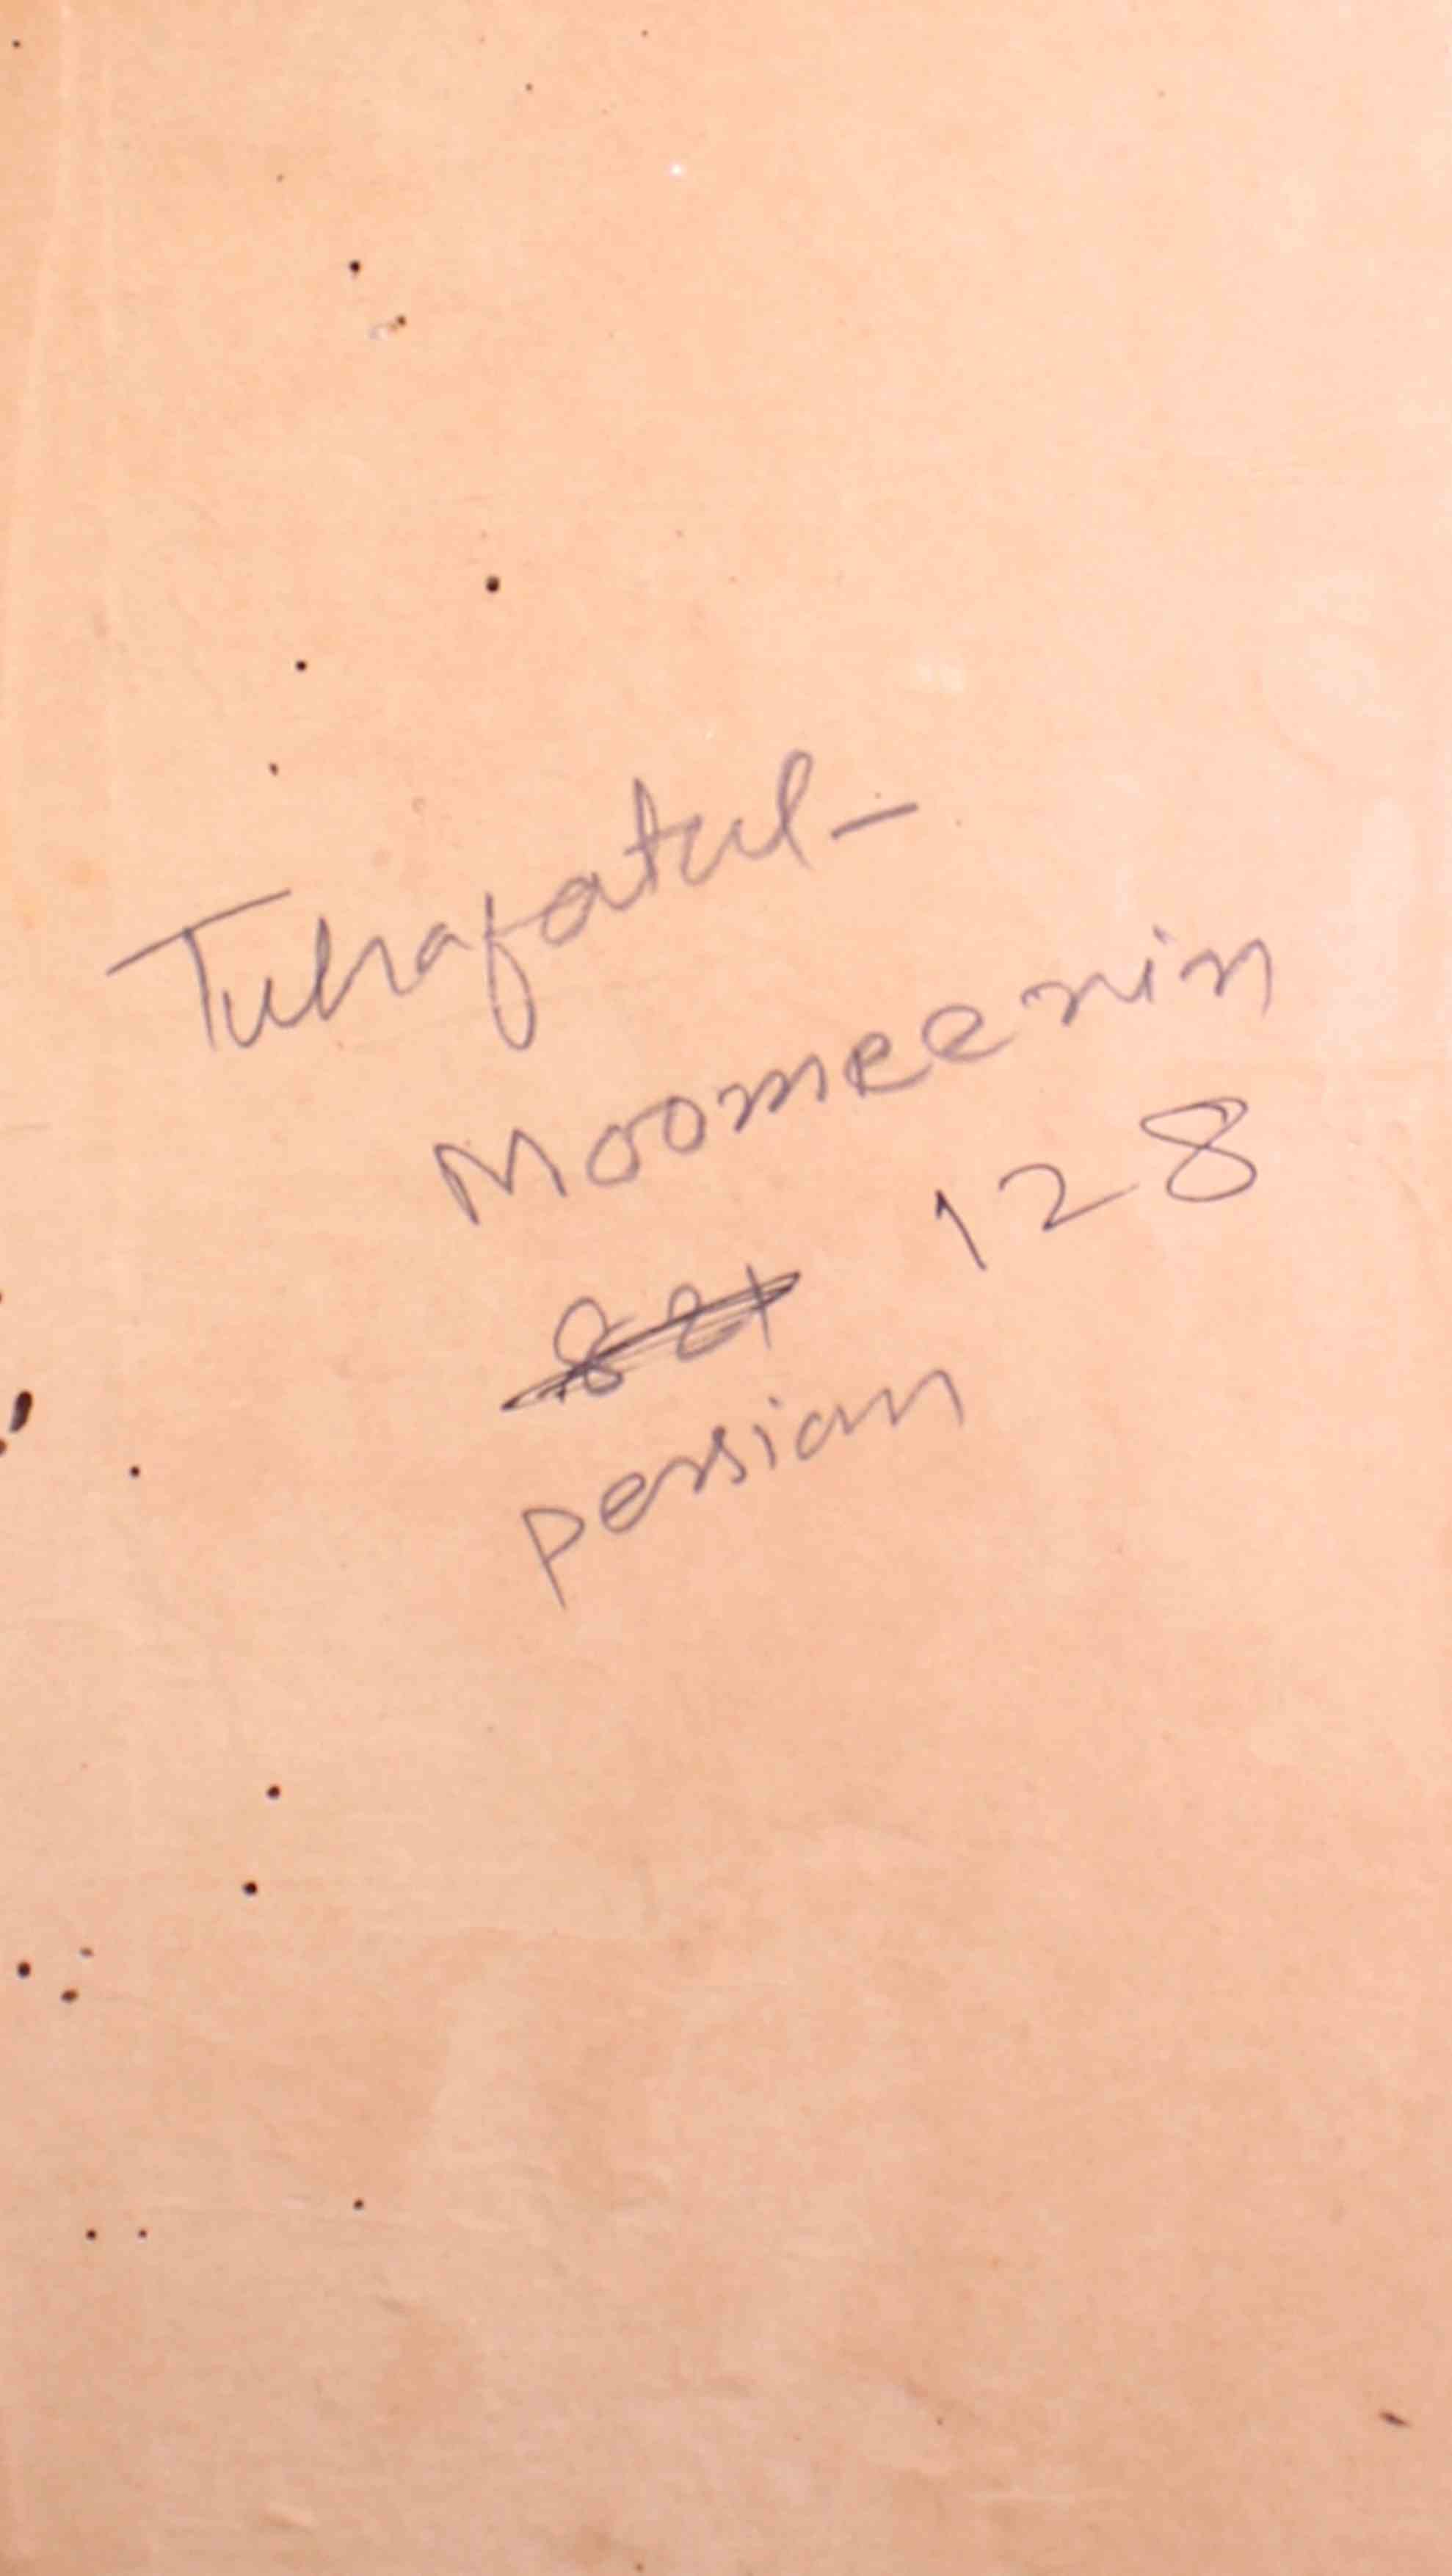 Tuhafatul-
Moomeenin
128
persian